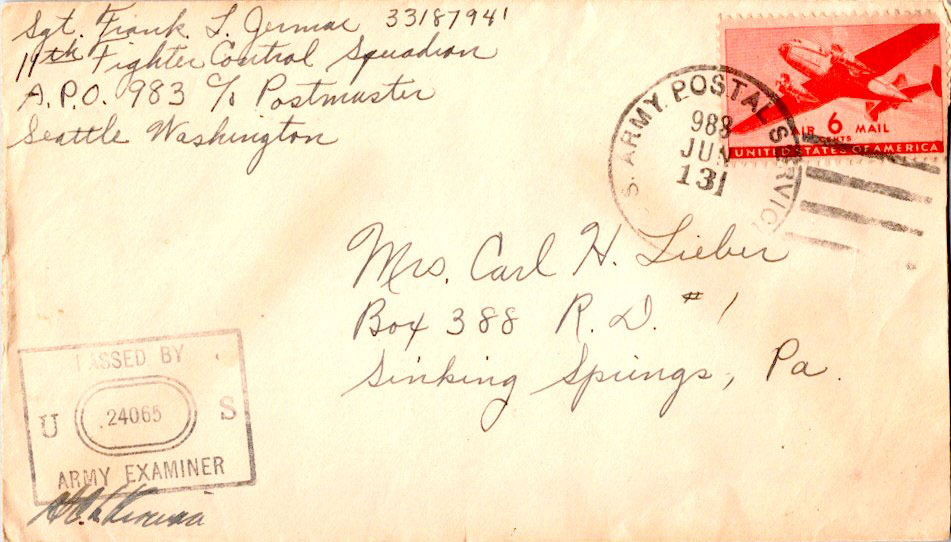 Sgt. Frank L. Jermac 33187941
11th Fighter Control Squadron
A.P.O. 983 c/o Postmaster
Seattle Washington
S. ARMY POSTAL SERVIC
988
JUN
131
AIR 6 MAIL
CENTS
UNITED STATES OF AMERICA
Mrs. Carl H. Lieber
Box 388 R.D. #1
Sinking Springs, Pa.
PASSED BY
U .24065 S
ARMY EXAMINER